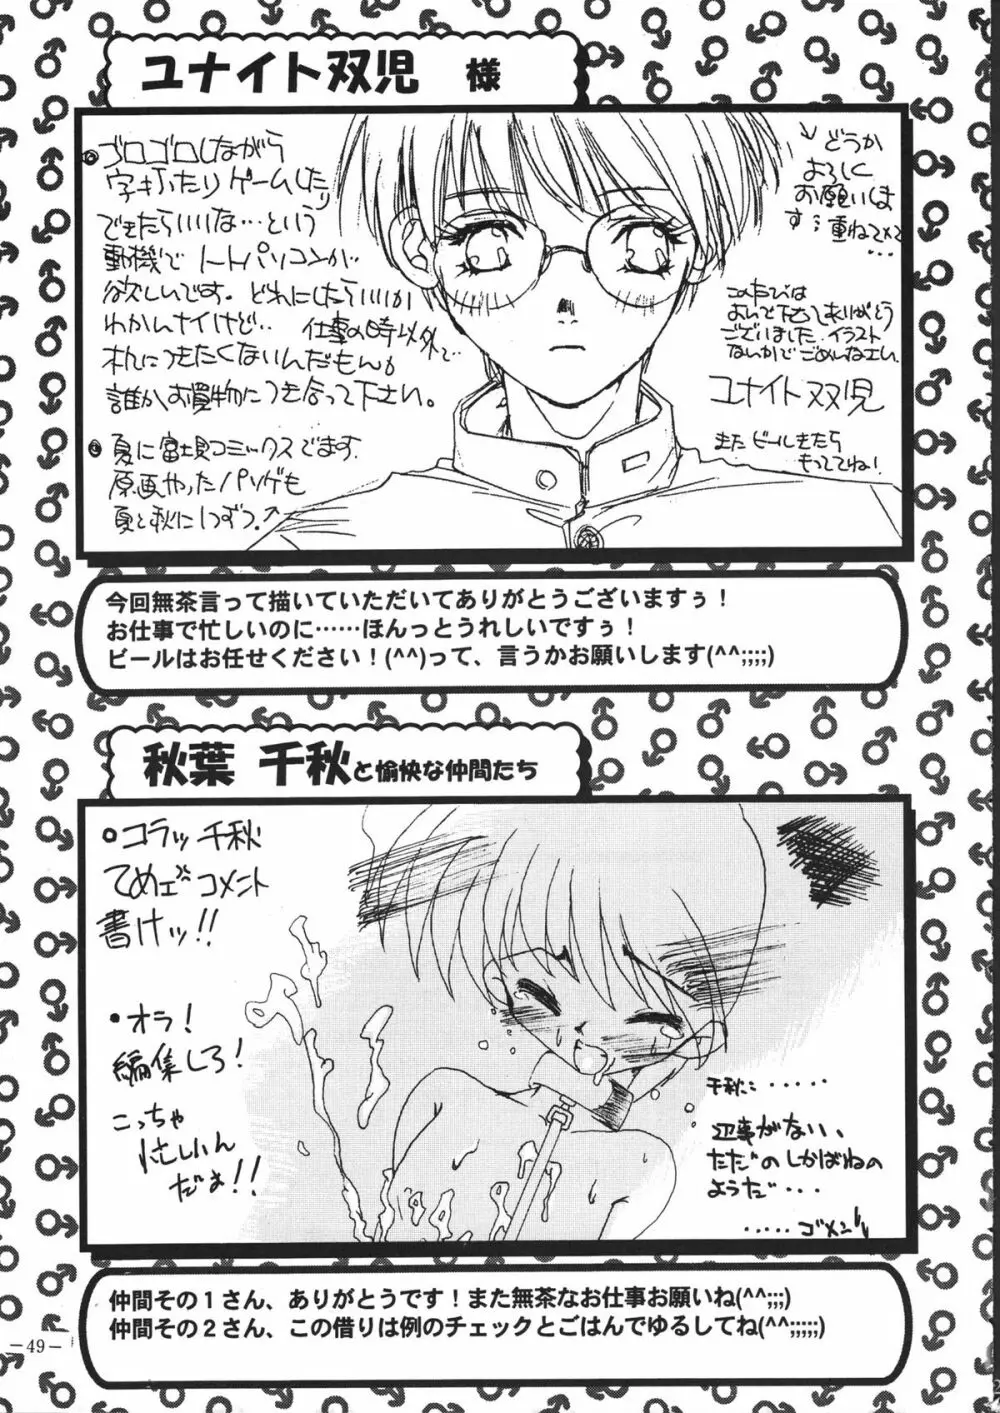 ユナイト双児 様
ゴロゴロしながら
字打ったりゲームしたり
できたらいいな…という
動機で ノートパソコンが
欲しいです。どれにしたらいいか
わかんナイけど… 仕事の時以外で
机につきたくないんだもん。
誰かお買物につき合って下さい。
夏に富士見コミックスでます。
原画やったパソゲも
夏と秋に1つずつ。
どうか
よろしく
お願いしま
す… 重ねて×2
…
このたびは
よんで下さってありがとう
ございました。イラスト
ないかでごめんなさい。
ユナイト双児
また ビールもたら
もっててね!
今回無茶言って描いていただいてありがとうございますぅ!
お仕事で忙しいのに……ほんっとうれしいですぅ!
ビールはお任せください!(^^)って、言うかお願いします(^^;;;;)
秋葉 千秋と愉快な仲間たち
コラッ千秋
てめェ コメント
書けッ!!
・オラ!
編集しろ!
こっちゃ
忙しいん
だよ!!
千秋:・・・・・
返事がない、
ただの しかばねの
ようだ・・・
・・・・・ゴメン
仲間その1さん、ありがとうです!また無茶なお仕事お願いね(^^;;;)
仲間その2さん、この借りは例のチェックとごはんでゆるしてね(^^;;;;;)
-49-